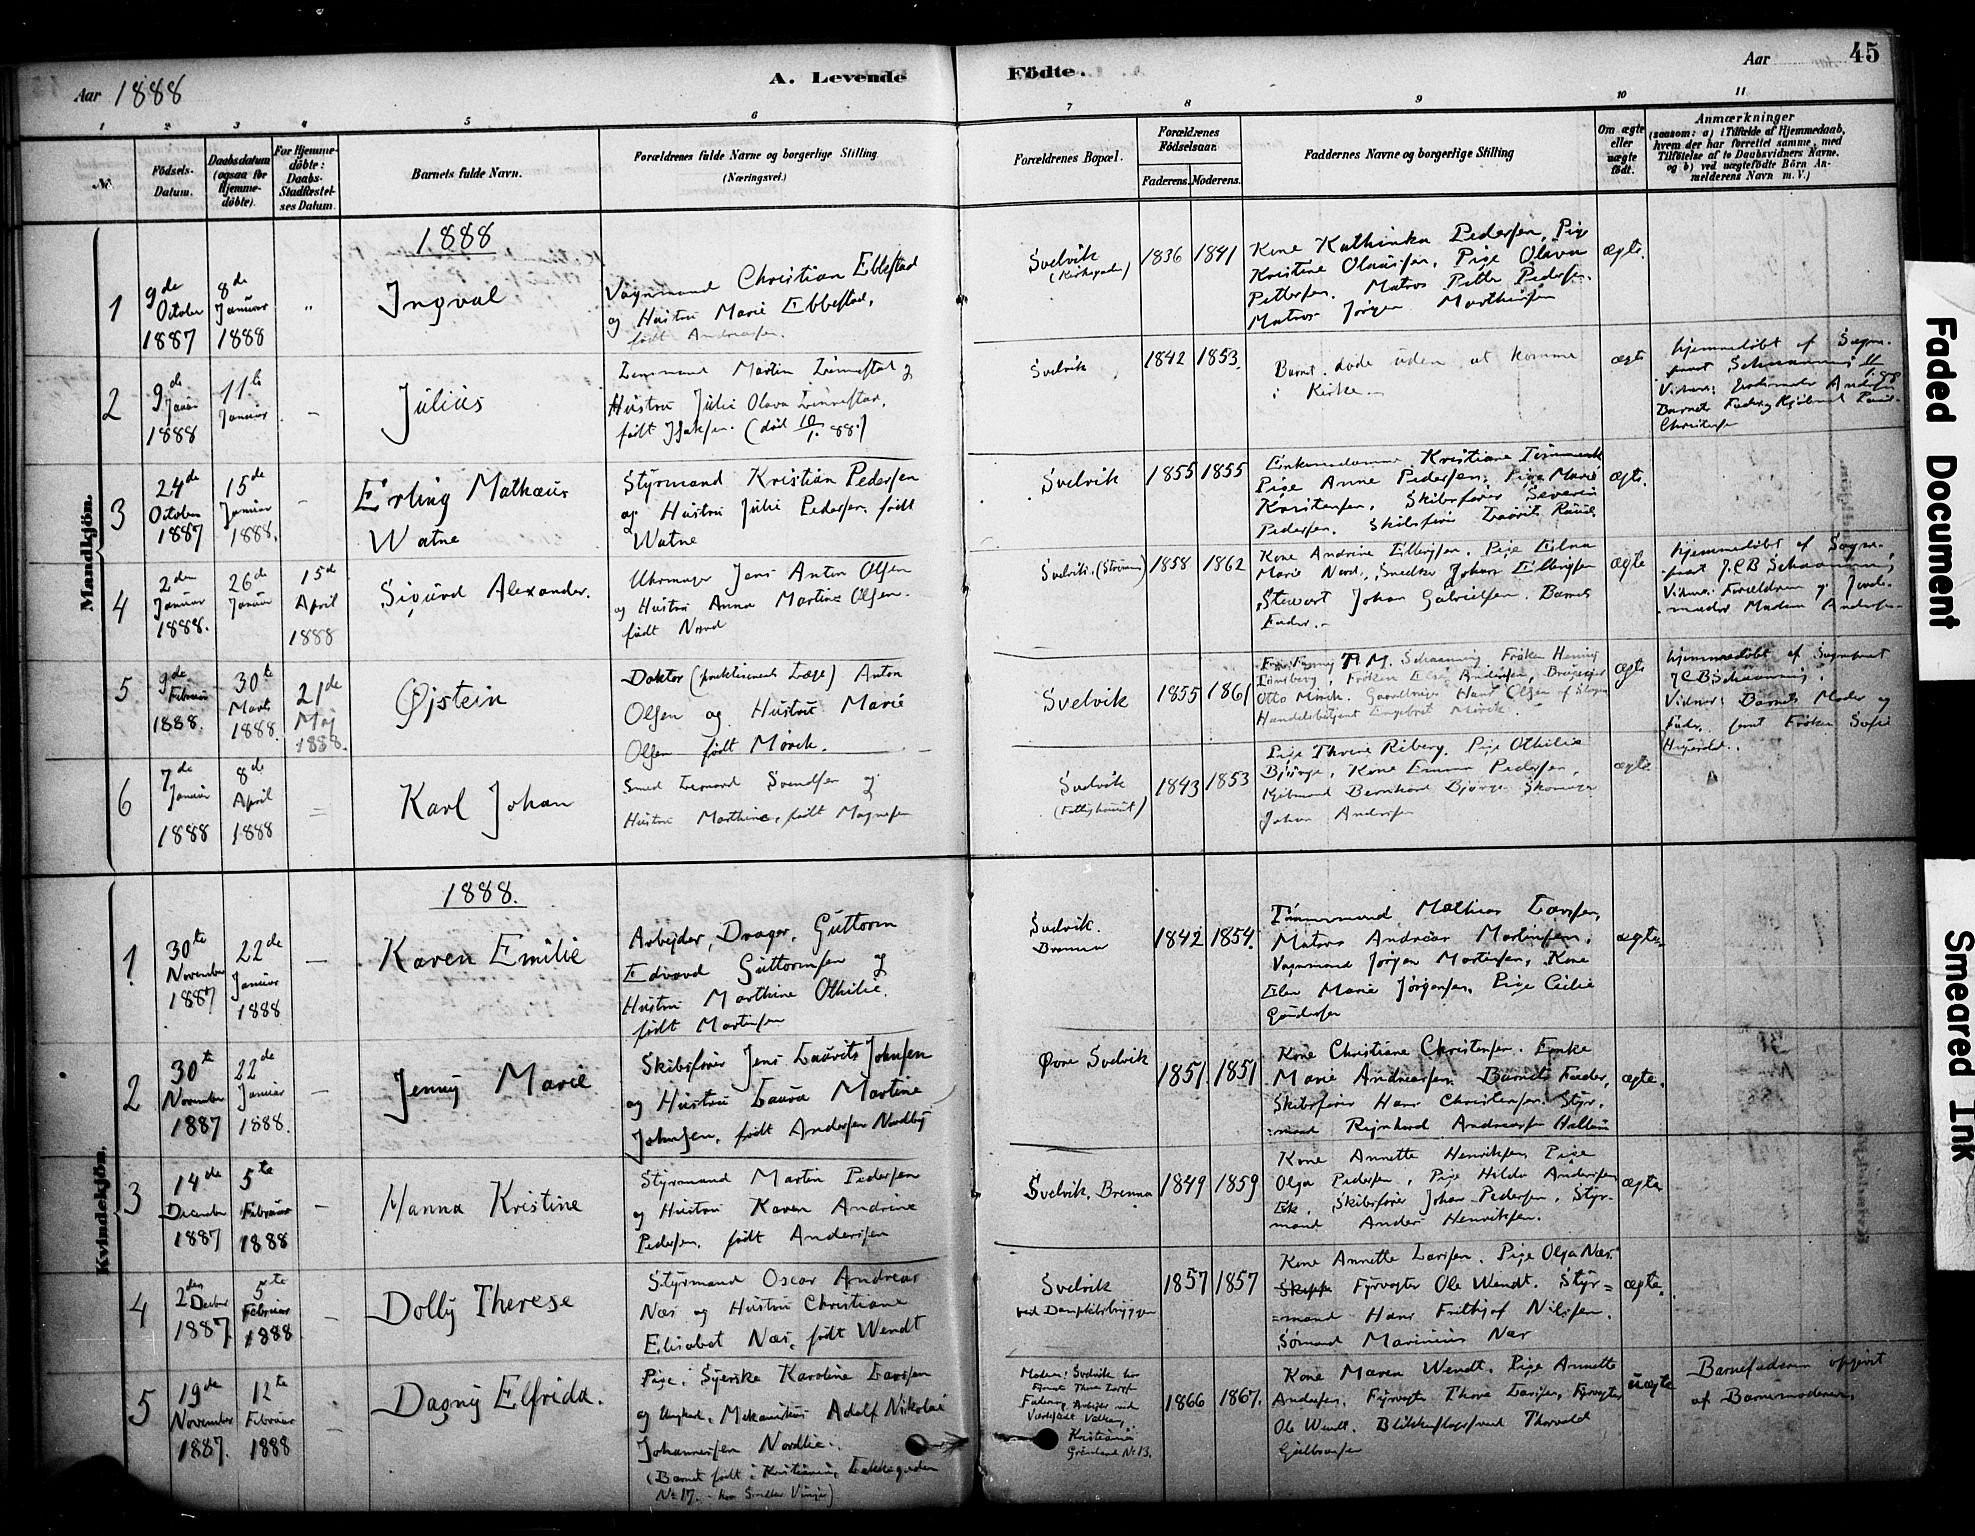 Aar 1888
A. Levende
Födte.
Aar
45
1 2 3 4 5 6 7 8 9 10 11
Nr.
Födsels-
Datum.
Daabsdatum
(ogsaa for
Hjemme-
döbte).
For Hjemme-
döbte:
Daabs-
Stadfæstel-
ses Datum.
Barnets fulde Navn.
Forældrenes fulde Navne og borgerlige Stilling
(Næringsvei.)
Forældrenes Bopæl.
Forældrenes
Födselsaar.
Faderens. Moderens.
Faddernes Navne og borgerlige Stilling
Om ægte
eller
uægte
födt.
Anmærkninger
(saasom: a) i Tilfælde af Hjemmedaab,
hvem der har forrettet samme, med
Tilföielse af to Daabsvidners Navne.
og b) ved uægtefödte Börn An-
melderens Navn m.V.)
Mandkjön.
1888
1
9de
October
1887
8de
Januar
1888
"
Ingval
Vognmand Christian Ebbestad
og Hustru Marie Ebbestad,
født Andreasen.
Svelvik
(Kirkegaden)
1836 1841
Kone Kathinka Pedersen, Pige
Kristine Olaussen, Pige Olava
Pettersen. Matros Petter Pedersen.
Matros Jörgen Marthinsen
ægte.
2
9de
Januar
1888
11te
Januar
-
Julius
Martin Linnestad og
Hustru Julie Olava Linnestad,
født Isaksen. (død 10/1. 88.)
Svelvik
1842 1853.
Barnet døde uden at komme
i Kirke.
ægte
Hjemmedøbt af Sogne-
præst Schaanning 11/1.88
Barnets Fader og
Christensen
3
24de
October
1887
15de
Januar
1888.
-
Erling Mathæus
Watne
Styrmand Kristian Pedersen
og Hustru Julie Pedersen, født
Watne
Svelvik
1855 1855
Enkemadame Kristiane
Pige Anne Pedersen, Pige Marie
Karstensen, Skibsfører Severin
Pedersen. Skibsfører Laurits
ægte.
4
2den
Januar
1888.
26de
Januar
15de
April
1888
Sigurd Alexander.
Uhrmager Jens Anton Olsen
og Hustru Anna Martine Olsen.
født Nord
Svelvik. (Strømm)
1858 1862
Kone Andrine Ellingsen. Pige
Marie Nord. Snedker Johan Ellingsen
Stewart Johan Gabrielsen. Barnets
Fader.
ægte
Hjemmedøbt af Sogne-
præst J.C.B Schaanning,
Vidner: Forældrene og Jorde-
moder Madam Andersen
5
9de
Februar
1888.
30te
Marts
1888.
21de
Maj
1888.
Øjstein
Doktor (praktiserende Læge) Anton
Olsen og Hustru Marie
Olsen født Mörch.
Svelvik
1855 1861
Fru Fanny Th. M. Schaanning. Frøken Henny
Tönsberg, Frøken Andersen, Brugsejer
Otto Mörch. Hans Olsen af
Handelsbetjent Engebret Mörch.
ægte
Hjemmedøbt af Sognepræst
J.C.B Schaanning.
Vidner: Barnets Moder og
Fader, samt Frøken Sofie
6
7de
Januar
1888
8de
April
1888
=
Karl Johan
Smed Leonard Svendsen og
Hustru Marthine, født Magnesen
Svelvik
(Fattighuset)
1843 1853
Pige Thrine Riberg. Pige Othilie
Bjørge, Kone Emma Pedersen,
Kjøbmand Bernhard Bjørge.
Johan Andersen
ægte
Kvindekjön.
1888.
1
30te
November
1887
22de
Januar
1888
-
Karen Emilie
Arbejder, Drager, Guttorm
Edvard Guttormsen og
Hustru Marthine Othilie.
født Martinsen
Svelvik.
Brenna
1842 1854.
Tømmermand Mathias Larsen,
Matros Andreas Martinsen.
Vognmand Jørgen Mortensen, Kone
Elen Marie Jørgensen, Pige Cecilie
Gundersen
ægte
2
30te
November
1887
22de
Januar
1888.
-
Jenny Marie
Skibsfører Jens Laurits Johnsen
og Hustru Laura Martine
Johnsen, født Andersen Nordby
Øvre Svelvik
1851. 1851
Kone Christiane Christensen. Enke
Marie Andreasen. Barnets Fader,
Skibsfører Hans Christensen. Styr-
mand Rejnhard Andreasen Hallum
ægte.
3
14de
December
1887
5te
Februar
1888
-
Hanna Kristine
Styrmand Martin Pedersen
og Hustru Karen Andrine
Pedersen. født Andersen
Svelvik, Brenna
1849 1859
Kone Annette Henriksen, Pige
Olga Pedersen, Pige Hilda Andersen
Ek. Skibsfører Johan Pedersen, Styr-
mand Anders Henriksen.
ægte
4
2den
Decbr
1887.
5te
Februar
1888
-
Dolly Therese
Styrmand Oscar Andreas
Næs og Hustru Christiane
Elisabet Næs. født Wendt
Svelvik
ved Dampskibsbryggen
1857 1857
Kone Annette Larsen. Pige Olga Næs.
Fyrvogter Ole Wendt. Styr=
=mand Hans Frithjof Nilsen.
Sømand Marinius Næs
ægte.
5
19de
November
1887.
12te
Februar
1888
Dagny Elfrida.
Pige: Syerske Karoline Larsen
og Ungkarl. Mekanikus Adolf Nikolai
Johannessen Nordlie.
(Barnet født i Kristiania, Lakkegaden
No 17. - hos Snedker Vinje)
Moderen: Svelvik hos
Thore Larsen
Faderen: Arbejder ved
Kristiania
Grønland No 13.
1866 1867.
Kone Maren Wendt. Pige Annette
Andersen. Fyrvogter Thore Larsen, Fyrvogter
Ole Wendt. Blikkenslagersvend Thorvald
Gulbransen
uægte
Barnefaderen opgivet
af Barnemoderen.
Faded Document
Smeared Ink